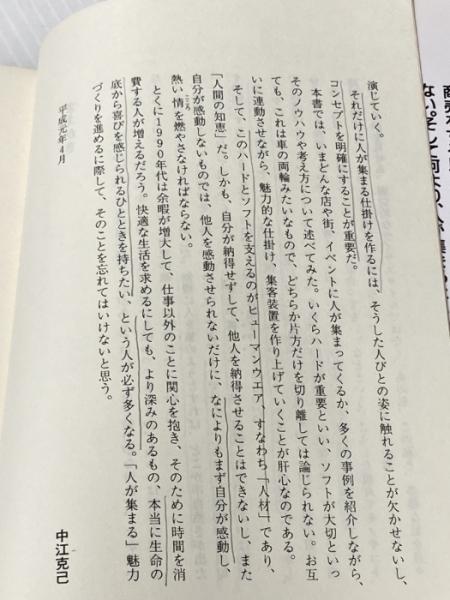 演じていく。
それだけに人が集まる仕掛けを作るには、そうした人びとの姿に触れることが欠かせないし、
コンセプトを明確にすることが重要だ。
本書では、いまどんな店や街、イベントに人が集まってくるか、多くの事例を紹介しながら、
そのノウハウや考え方について述べてみた。いくらハードが重要といい、ソフトが大切といっ
ても、これは車の両輪みたいなもので、どちらか片方だけを切り離しては論じられない。お互
いに連動させながら、魅力的な仕掛け、集客装置を作り上げていくことが肝心なのである。
そして、このハードとソフトを支えるのがヒューマンウエア、すなわち「人材」であり、
「人間の知恵」だ。しかも、自分が納得せずして、他人を納得させることはできないし、また
自分が感動しないものでは、他人を感動させられないだけに、なによりもまず自分が感動し、
熱い情を燃やさなければならない。
とくに1990年代は余暇が増大して、仕事以外のことに関心を抱き、そのために時間を消
費する人が増えるだろう。快適な生活を求めるにしても、より深みのあるもの、本当に生命の
底から喜びを感じられるひとときを持ちたい、という人が必ず多くなる。「人が集まる」魅力
づくりを進めるに際して、そのことを忘れてはいけないと思う。
平成元年4月
中江克己